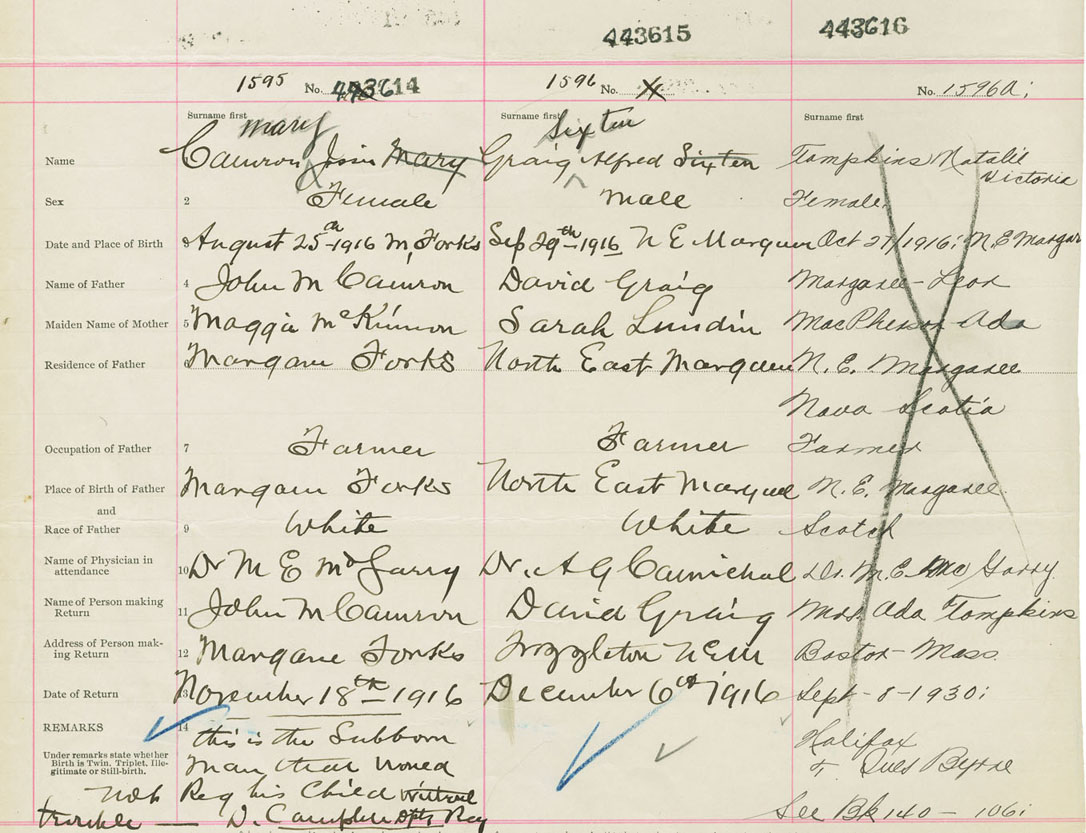 443615
443616
1595 No. 443614
1596 No. X
No. 1596a;
Surname first
Surname first
Surname first
mary
Sixten
Name
Camron Josin Mary
Graig Alfred Sixten
Tompkins Natalie
Victoria
Sex
2 Female
Male
Female
Date and Place of Birth
August 25th 1916 M, Forks
Sep 29th 1916 N E Margaree
Oct 27/1916; N.E Margar
Name of Father
4 John M Camron
David Graig
Margaree - Leon
Maiden Name of Mother
5 Maggie McKinnon
Sarah Lundin
MacPherson Ada
Residence of Father
Margaree Forks
North East Margaree
N. E. Margaree
Nova Scotia
Occupation of Father
7 Farmer
Farmer
Farmer
Place of Birth of Father
Margaree Forks
North East Margaree
N. E. Margaree
and
Race of Father
9 White
White
Scotch
Name of Physician in
attendance
10 Dr M E McGarry
Dr. A G Carmichal
Dr. M. E. Mac Garry
Name of Person making
Return
11 John M Camron
David Graig
Mrs. Ada Tompkins
Address of Person mak-
ing Return
12 Margaree Forks
Froggleton N E M
Boston - Mass.
Date of Return
13 November 18th 1916
December 6th 1916
Sept - 8 - 1930;
REMARKS
14 this is the Subborn
Halifax
Under remarks state whether
Birth is Twin, Triplet, Ille-
gitimate or Still-birth.
man that
Byrne
not Reg his Child
trouble — D. Campbell Dpty Reg
See Bk 140 - 106;